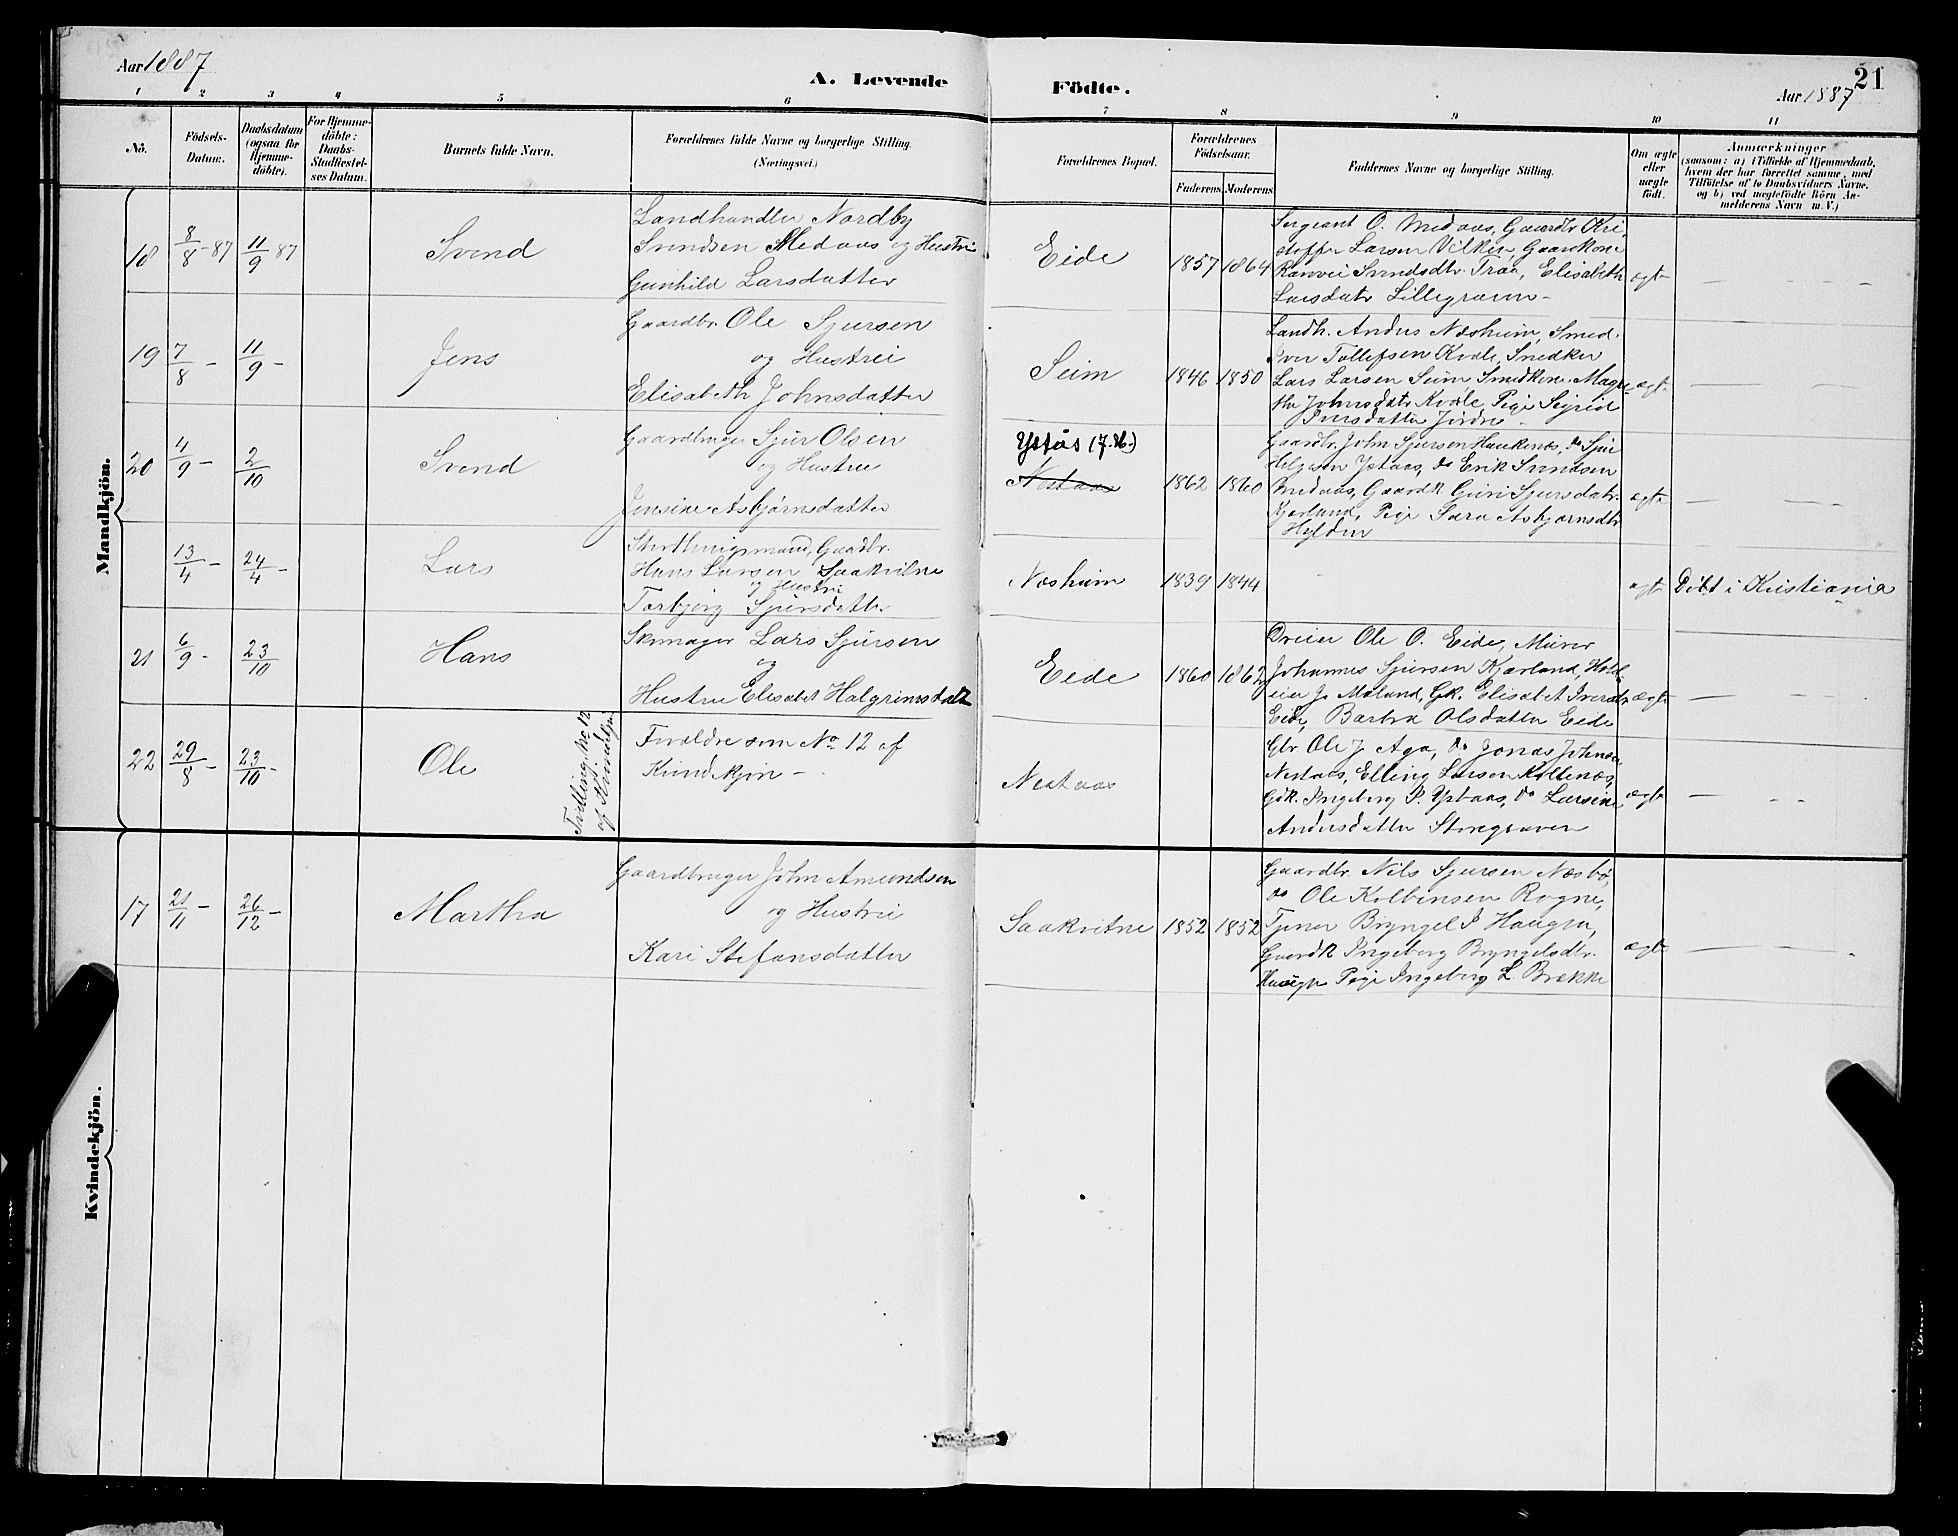 Aar 1887
A. Levende Födte.
21
Aar 1887
1 2 3 4 5 6 7 8 9 10 11
No. Födsels-Datum. Daabsdatum (ogsaa for Hjemme-döbte). For Hjemme-döbte: Daabs-Stadfæstel-ses Datum. Barnets fulde Navn. Forældrenes fulde Navne og borgerlige Stilling. (Næringsvei.) Forældrenes Bopæl. Forældrenes Födselsaar. Faderens. Moderens. Faddernes Navne og borgerlige Stilling. Om ægte eller uægte födt. Anmærkninger (saasom: a) i Tilfælde af Hjemmedaab, hvem der har forrettet samme, med Tilföielse af to Daabsvidners Navne, og b) ved uægtefödte Börn An-melderens Navn m. V.)
Mandkjön.
18 8/8-87 11/9 87 Svend
Landhandler Nordby
Svendsen Medaas og Hustru
Gunhild Larsdatter
Eide 1857 1864
Sergeant O. Medaas, Gaardbr Kri
stoffer Larsen Vilken, Gaardkone
Ranvei Svendsdtr. Traa, Elisabeth
Larsdatr Lillegraven -
ægte
19 7/8 - 11/9 - Jens
Gaardbr. Ole Sjursen
og Hustru
Elisabeth Johnsdatter
Seim 1846 1850
Landh. Anders Næsheim, Smed.
Iver Tollefsen Kvale, Snedker
Lars Larsen Seim, Smedkone Magre
the Johnsdatr Kvale, Pige Sigrid
Iversdatter Jordre
ægte
20 4/9 - 2/10 Svend
Gaardbruger Sjur Olsen
og Hustru
Jensine Asbjørnsdatter
Ystås (7.H.)
Nestaas 1862 1860
Gaardbr. John Sjursen Haukenæs, do Sjur
Helgesen Ystaas, do Erik Svendsen
Medaas, Gaardk. Guri Sjursdatr.
Kjærland, Pige Sara Asbjørnsdtr
Hylden
ægte
13/4 - 24/4 - Lars
Storthingsmand, Gaardbr.
Hans Larsen Saakvitne
og Hustru
Torbjørg Sjursdatter
Næsheim 1839 1844
ægte
Døbt i Kristiania
21 6/9 - 23/10 Hans
Skomager Lars Sjursen
og
Hustru Elisabet Halgrimsdatt
Eide 1860 1862
Dreier Ole O. Eide, Murer
Johannes Sjursen Kjærland, Hotel
eier J. Mæland, Gk. Elisabet Iversdtr
Eide, Barbra Olsdatter Eide
ægte
22 29/8 - 23/10 - Ole
Tvilling No 12
af Kvindekjøn
Forældre som No 12 af
Kvindekjøn -
Nestaas
Gbr. Ole J Aga, do Jonas Johnsen
Nestaas, Elling Larsen Kollenæs,
Gdk. Ingeborg P. Ystaas, do Larsine
Andersdatter Storegraven
ægte
Kvindekjön.
17 21/11 - 26/12 - Martha
Gaardbruger John Amundsen
og Hustru
Kari Stefansdatter
Saakvitne 1852 1852
Gaardbr. Nils Sjursen Næsbø,
do Ole Kolbensen Rogne,
Tjener Bryngel P Haugen,
Gaardk Ingeborg Bryngelsdtr.
Haugen Pige Ingeborg L Brække
ægte